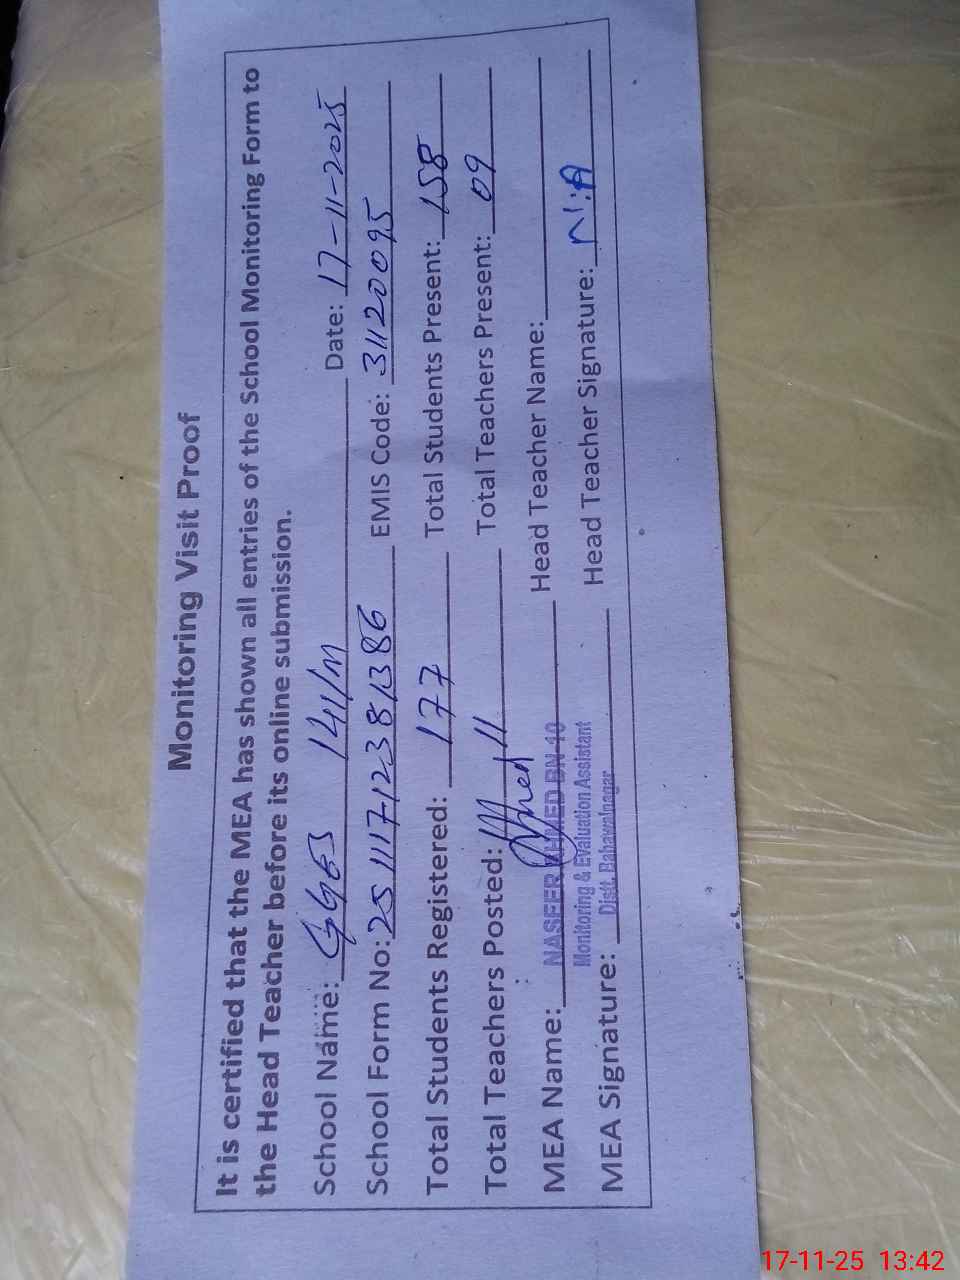 Monitoring Visit Proof
It is certified that the MEA has shown all entries of the School Monitoring Form to
the Head Teacher before its online submission.
School Name: GGES 141/M Date: 17-11-2025
School Form No: 25111712381386 EMIS Code: 31120095
Total Students Registered: 177 Total Students Present: 158
Total Teachers Posted: 11 Total Teachers Present: 09
MEA Name: NASEER AHMED BN-10 Head Teacher Name:
Monitoring & Evaluation Assistant
MEA Signature: Distt. Bahawalnagar Head Teacher Signature: N.A
17-11-25 13:42